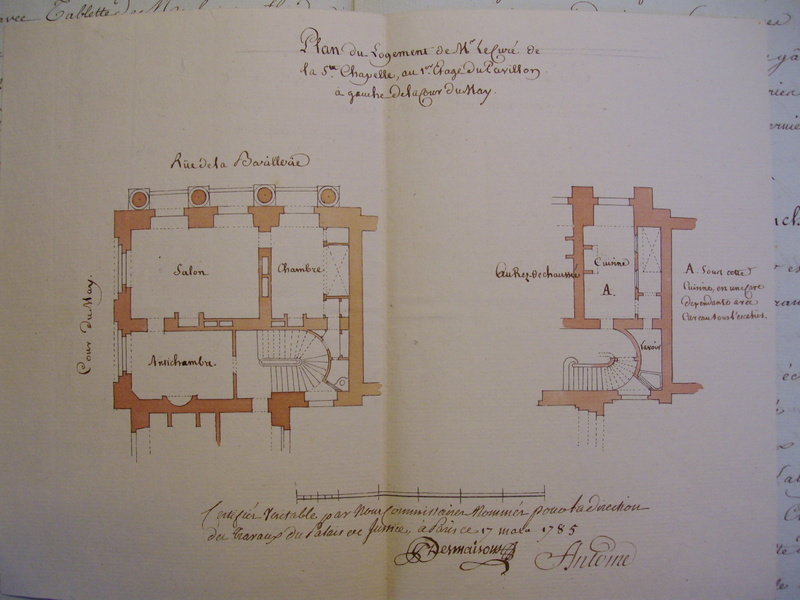 Plan du Logement de Mr. le Curé de
la Ste. Chapelle, au 1er. Etage du Pavillon
à gauche de la Cour du May.
Rüe de la Barillerie
Cour du May.
Salon
Chambre
Antichambre.
Au Rez-de-chaussée
Cuisine
A.
Lavoir
A. Sous cette
Cuisine, est une Cave
dependante avec
Caveau sous l'escalier.
Certifié Véritable par Nous Commissaires Nommés pour la direction
des Travaux du Palais de Justice, à Paris ce 17 mars 1785
Desmaisons
Antoine